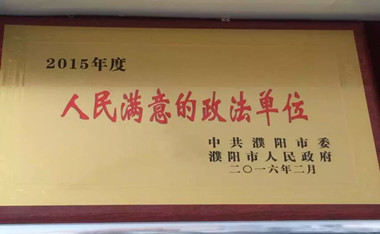 2015年度
人民满意的政法单位
中共濮阳市委
濮阳市人民政府
二〇一六年二月